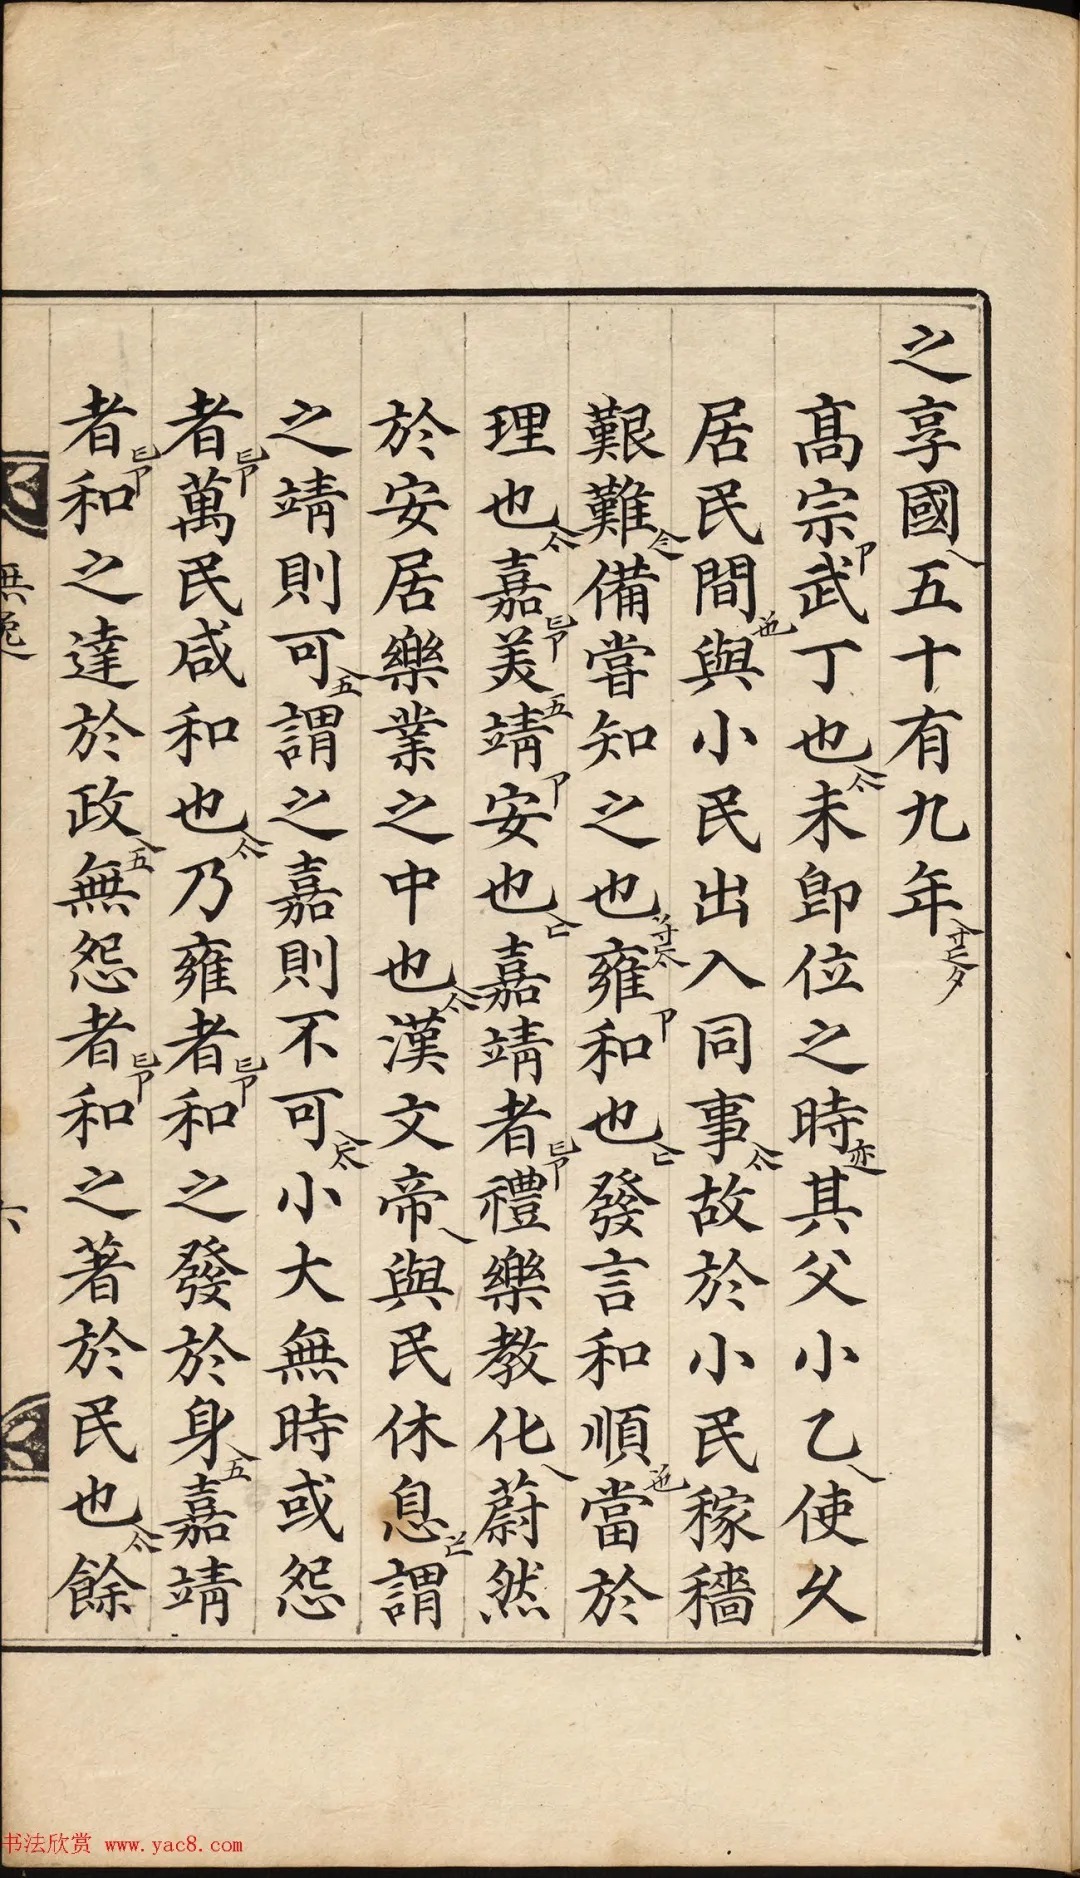 之享國五十有九年
髙宗武丁也未卽位之時其父小乙使久
居民間與小民出入同事故於小民稼穡
艱難備嘗知之也雍和也發言和順當於
理也嘉美靖安也嘉靖者禮樂教化蔚然
於安居樂業之中也漢文帝與民休息謂
之靖則可謂之嘉則不可小大無時或怨
者萬民咸和也乃雍者和之發於身嘉靖
者和之達於政無怨者和之著於民也餘
無逸
六
书法欣赏 www.yac8.com